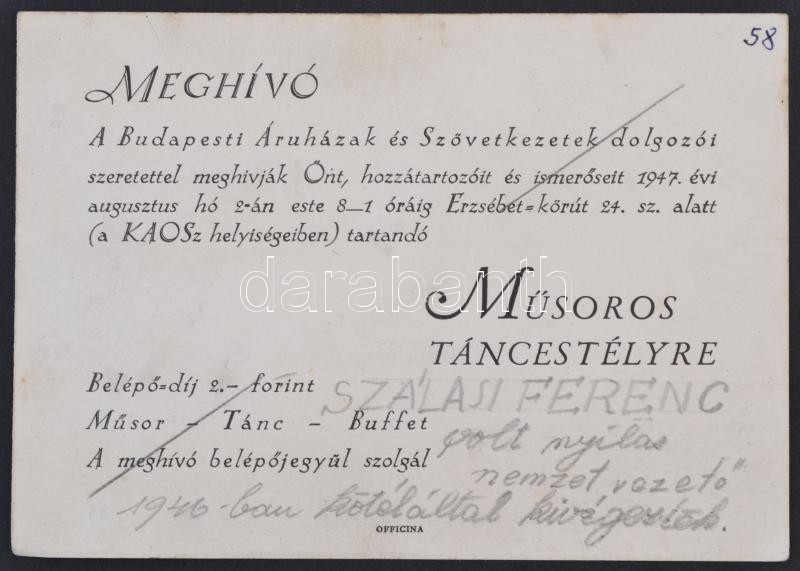 58
MEGHÍVÓ
A Budapesti Áruházak és Szövetkezetek dolgozói
szeretettel meghivják Önt, hozzátartozóit és ismerőseit 1947. évi
augusztus hó 2-án este 8—1 óráig Erzsébet=körút 24. sz. alatt
(a KAOSz helyiségeiben) tartandó
darabanth
MŰSOROS
TÁNCESTÉLYRE
Belépő=díj 2.– forint
SZÁLASI FERENC
Műsor – Tánc – Buffet
volt nyilas
A meghívó belépőjegyül szolgál
nemzet vezető"
1946-ban kötéláltal kivégezték.
OFFICINA